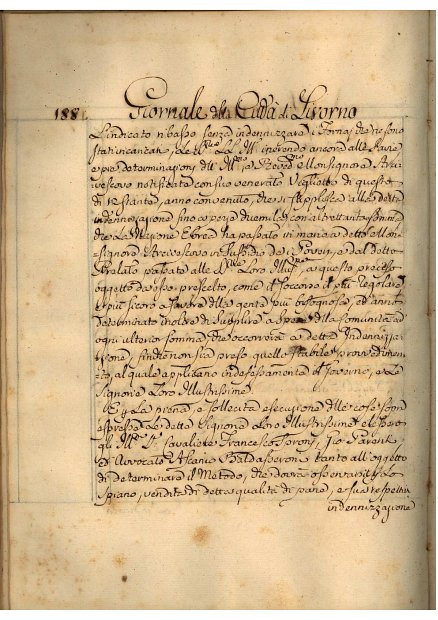 188 Giornale della Città di Livorno
L'indicato ribasso senza indennizzare i Fornaj, che ne sono
stati incaricati, e le SS.rie LL. Ill.me inerendo ancora alle savie
e pie determinazioni dell' Ill.mo, e Rev.mo Monsignore Arci-
vescovo notificata con suo venerato Veglietto di questo
dì restante, anno convenuto, che si supplisca alla detta
indennizzazione sino a pezze duemila con altrettanta somma,
che la Nazione Ebrea ha passato in mano a detto Mon-
signore Arcivescovo in sussidio de' Poveri, e dal detto
Prelato passato alle SS.rie Loro Ill.me, a questo preciso
oggetto da esso prescelto, come il soccorso il più regolare
e più sicuro a favore della gente più bisognosa, ed anno
determinato inoltre di supplire a spese della Comunità ad
ogni ulterior somma, che occorrerà a detta Indennizza-
zione, sinche non sia preso quello stabile provvedimen-
to, al quale applicano indefessamente il Governo, e Le
Signorie Loro Illustrissime
E per la piena, e sollecita esecuzione delle cose sopra
espresse Le dette Signorie Loro Illustrissime elessero
gli Ill.mi SS. Cavaliere Francesco Sproni, Gio
ed Avvocato Ascanio Baldasseroni tanto all'oggetto
di determinare il Metodo, che dovrà osservarsi per lo
spiano, vendita di detta qualità di pane, e sua respettiva
indennizzazione